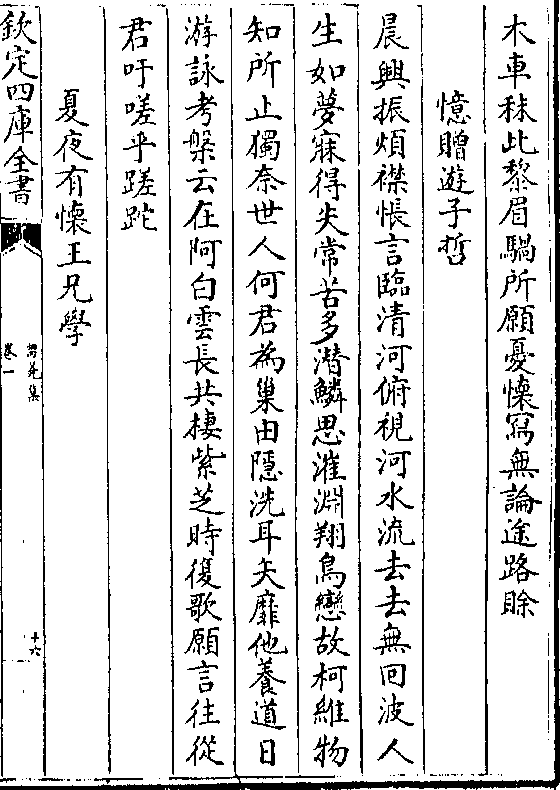 木車秣此黎眉騧所願憂懐冩無論途路賖
憶贈遊子哲
晨興振煩襟悵言臨清河俯視河水流去去無囘波人
生如夢寐得失常苦多潛鱗思漼淵翔鳥戀故柯維物
知所止獨奈世人何君為巢由隱洗耳矢靡他養道日
游詠考槃云在阿白雲長共棲紫芝時復歌願言往從
君吁嗟乎蹉跎
夏夜有懐王兄學
欽定四庫全書
卷一
十六